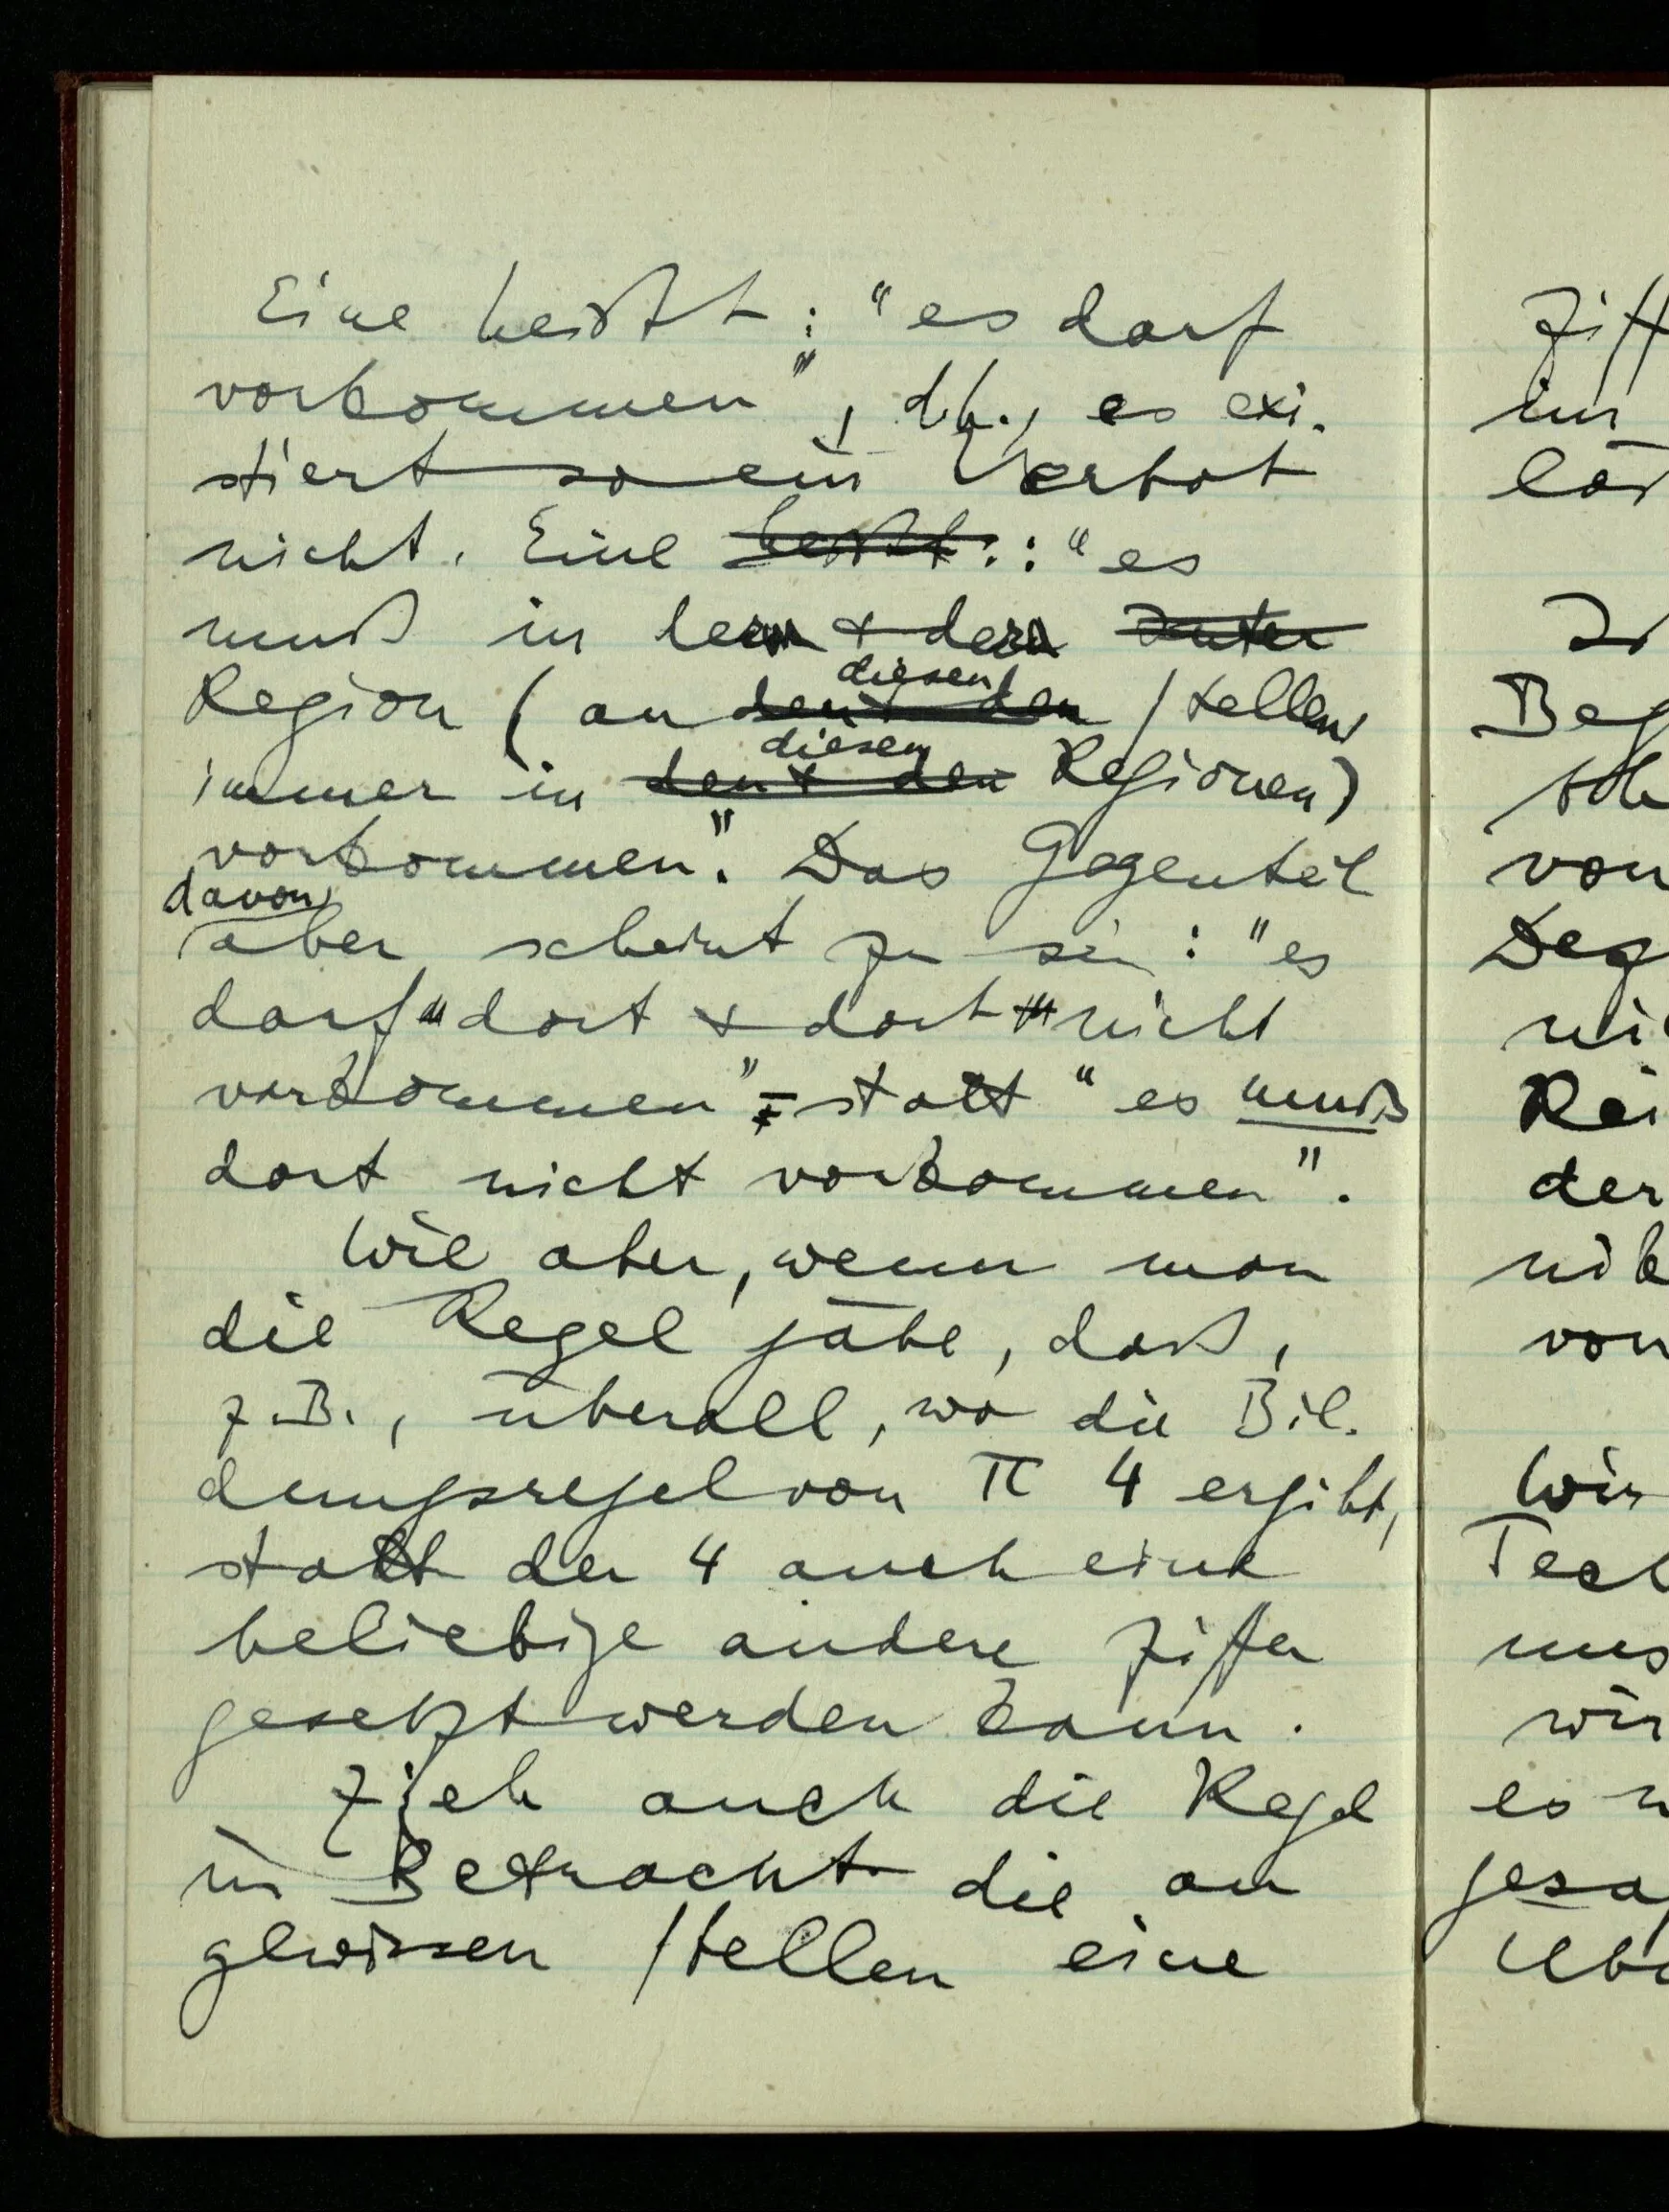 Eine heißt: "es darf
vorkommen", d.h., es exi-
stiert so ein Verbot
nicht. Eine heißt: : "es
muß in der & der
Region (an diesen den & den Stellen
immer in diesen den & den Regionen)
vorkommen". Das Gegenteil
davon
aber scheint zu sein: "es
darf dort & dort nicht
vorkommen" – statt "es muß
dort nicht vorkommen".
Wie aber, wenn man
die Regel gäbe, daß,
z.B., überall, wo die Bil-
dungsregel von π 4 ergibt,
statt der 4 auch eine
beliebige andere Ziffer
gesetzt werden kann.
Zieh auch die Regel
in Betracht die an
gewissen Stellen eine
Ziff
ein
Beg
von
wi
der
von
Wir
Tech
uns
wir
es
gesa